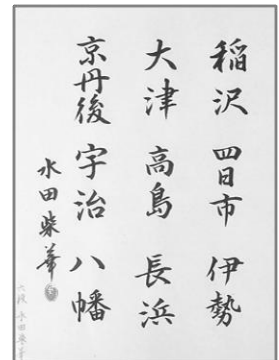 稲沢 四日市 伊勢
大津 高島 長浜
京丹後 宇治 八幡
水田柴華
六段 水田